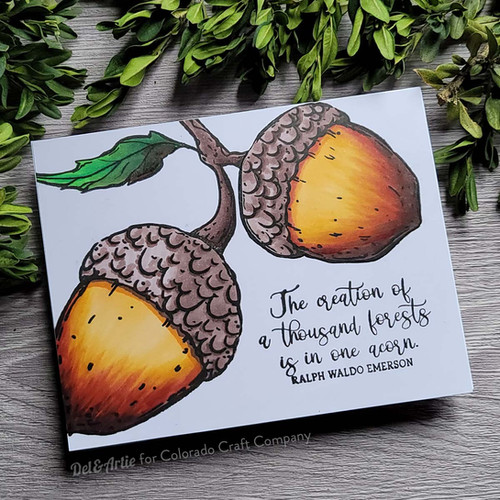 The creation of
a thousand forests
is in one acorn.
RALPH WALDO EMERSON
Del & Artie for Colorado Craft Company